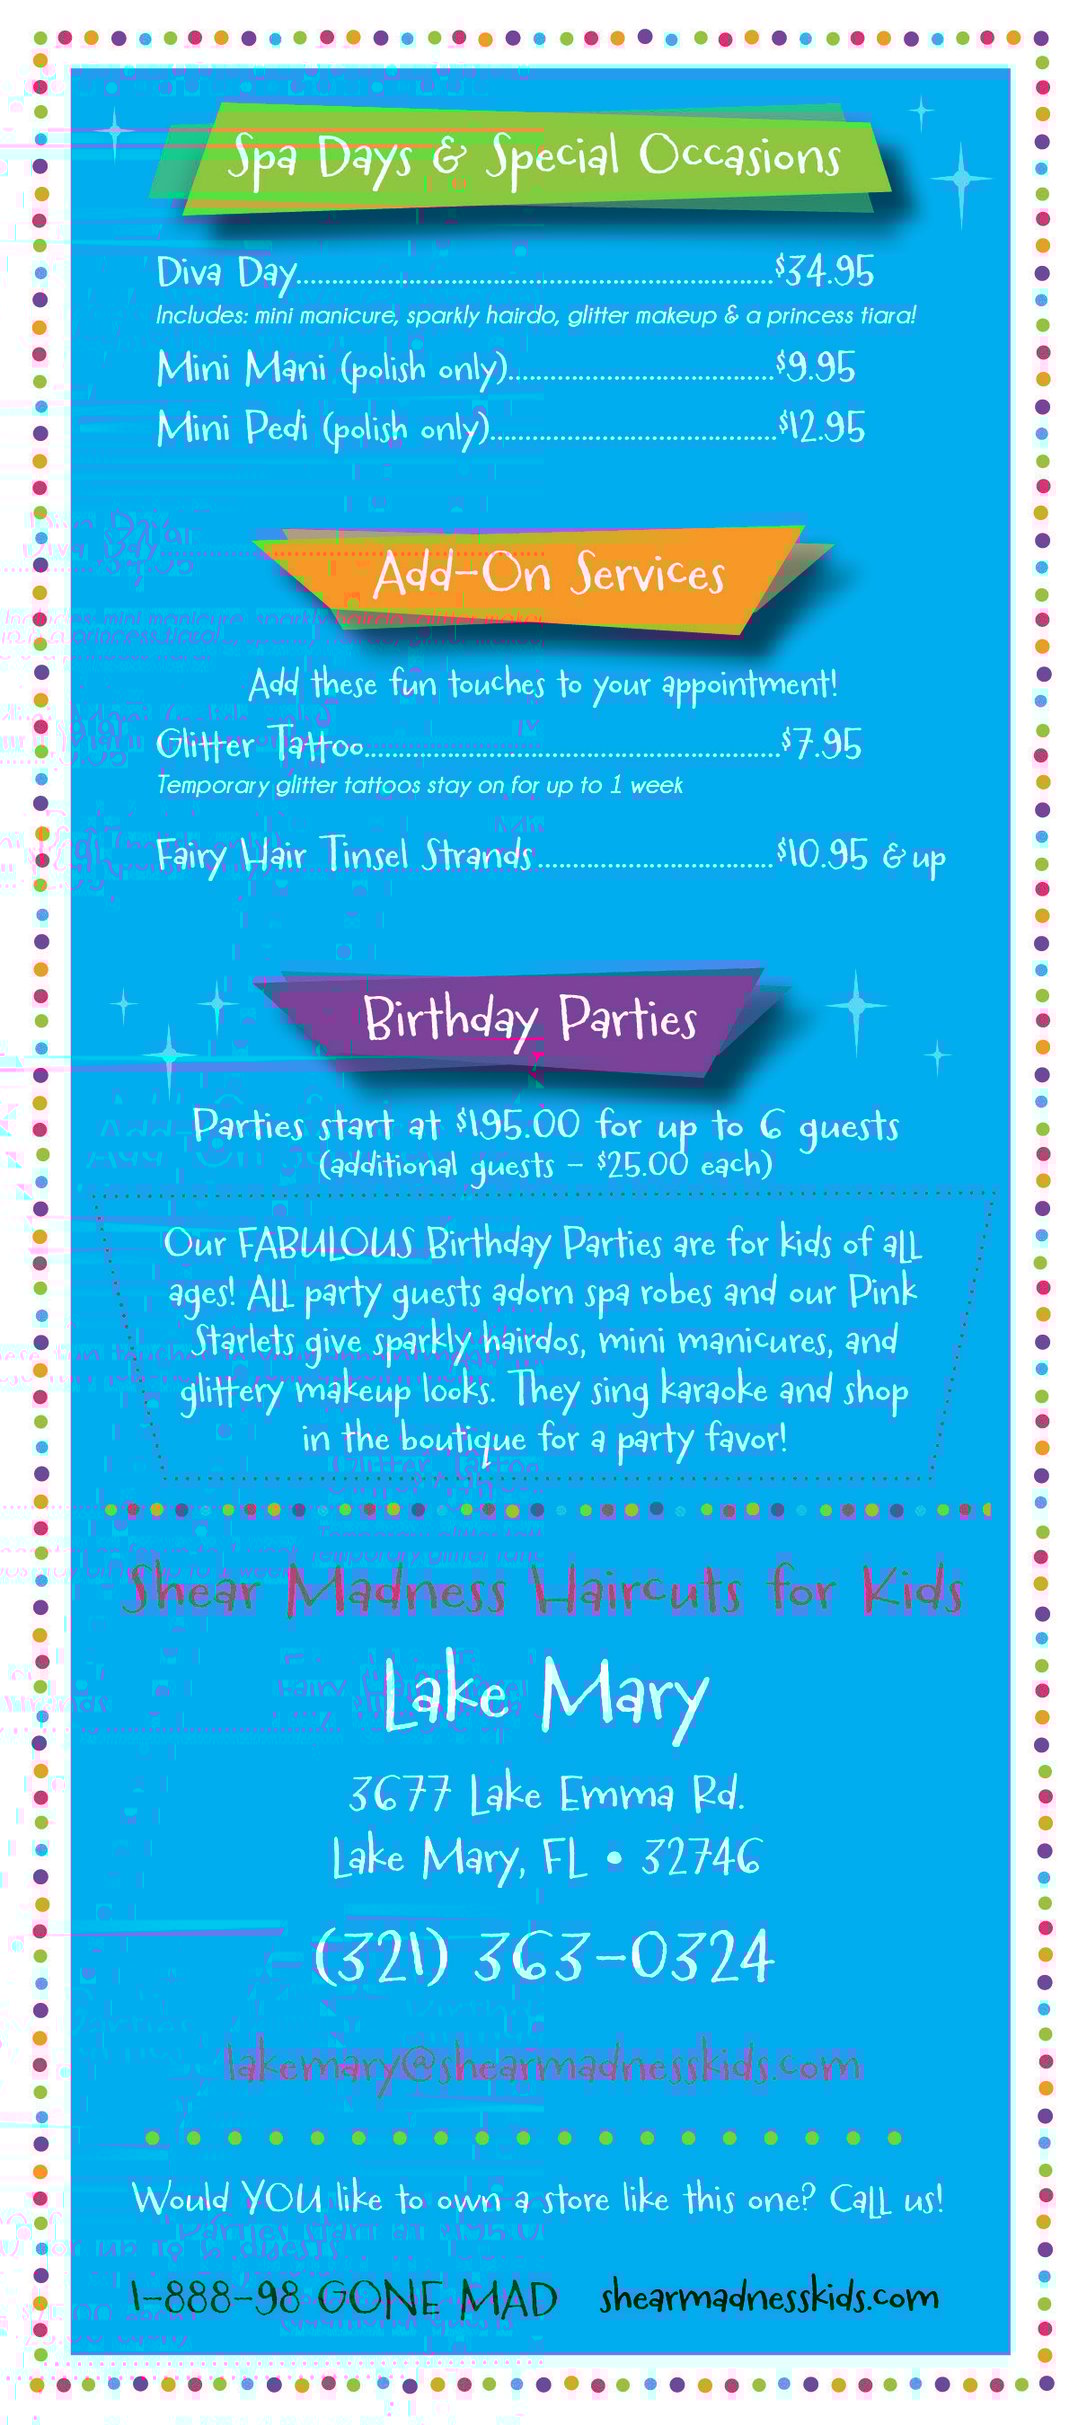 Spa Days & Special Occasions
Diva Day....................................................................$34.95
Includes: mini manicure, sparkly hairdo, glitter makeup & a princess tiara!
Mini Mani (polish only)......................................$9.95
Mini Pedi (polish only).........................................$12.95
Add-On Services
Add these fun touches to your appointment!
Glitter Tattoo...........................................................$7.95
Temporary glitter tattoos stay on for up to 1 week
Fairy Hair Tinsel Strands..................................$10.95 & up
Birthday Parties
Parties start at $195.00 for up to 6 guests
(additional guests – $25.00 each)
Our FABULOUS Birthday Parties are for kids of aLL
ages! ALL party guests adorn spa robes and our Pink
Starlets give sparkly hairdos, mini manicures, and
glittery makeup looks. They sing karaoke and shop
in the boutique for a party favor!
Shear Madness Haircuts for Kids
Lake Mary
3677 Lake Emma Rd.
Lake Mary, FL • 32746
(321) 363-0324
lakemary@shearmadnesskids.com
Would YOU like to own a store like this one? CaLL us!
1-888-98 GONE MAD shearmadnesskids.com